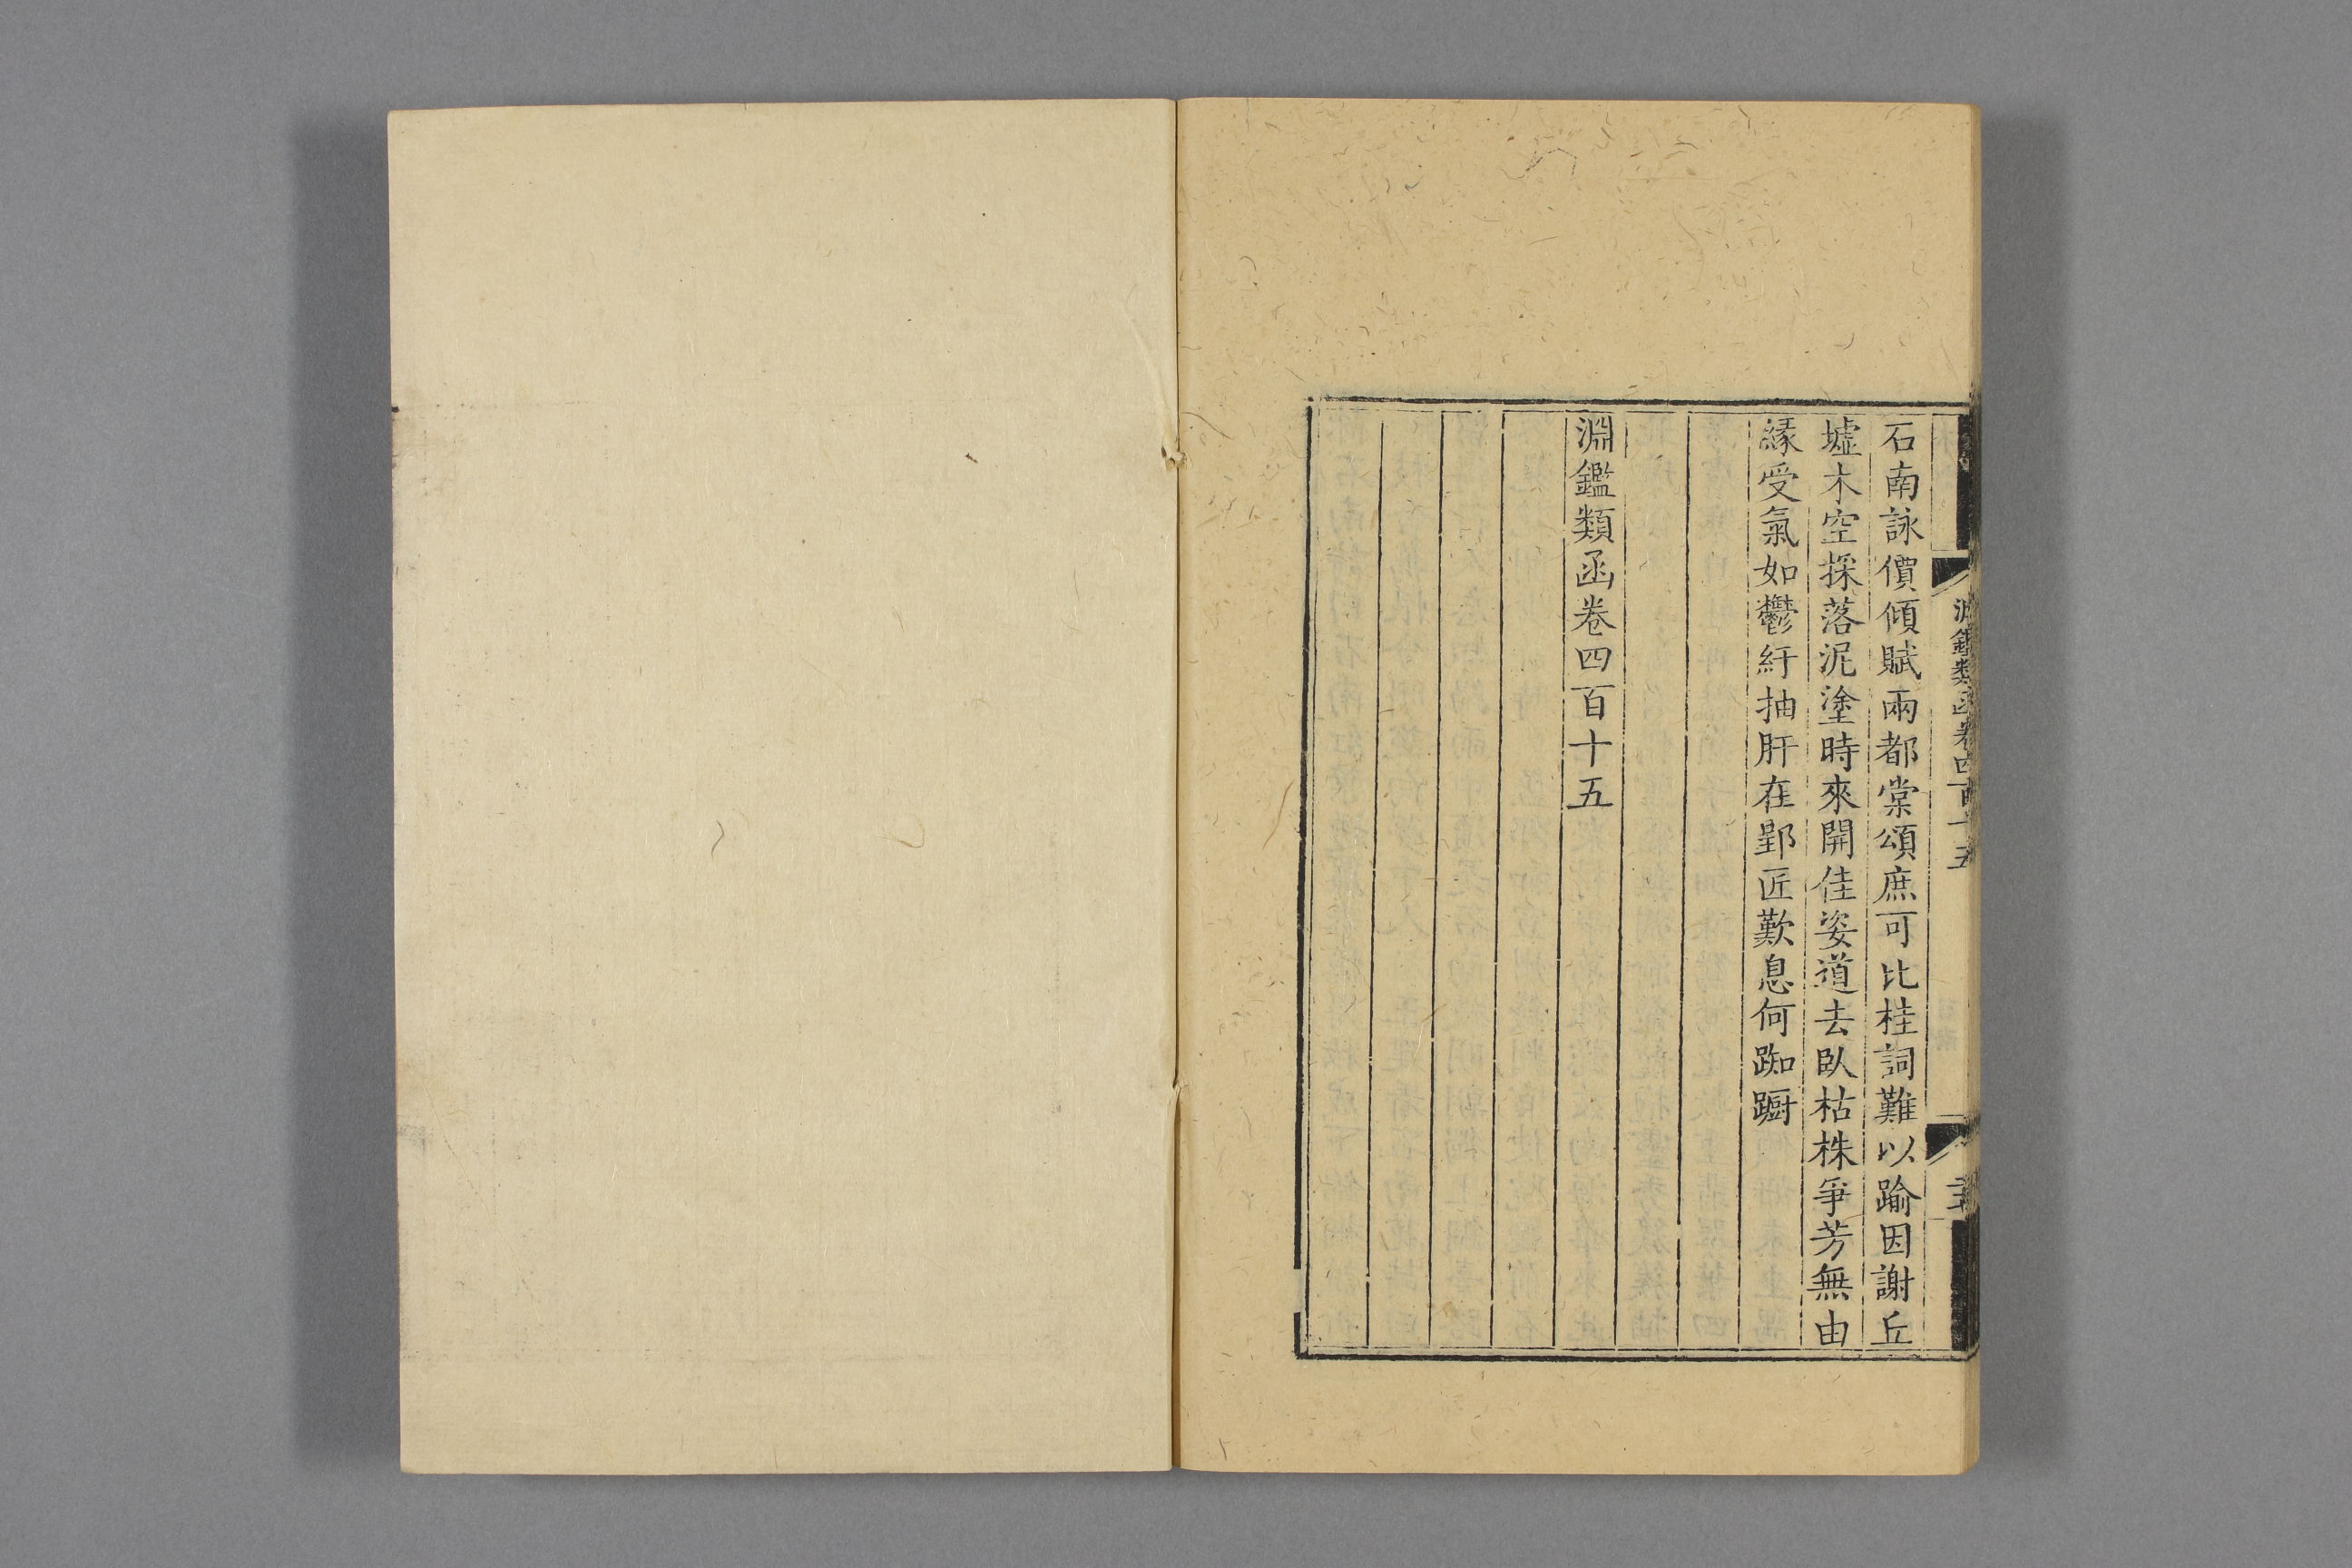 石南詠價傾賦兩都棠頌庶可比桂詞難以踰因謝丘
墟木空採落泥塗時來開佳姿道去臥枯株爭芳無由
緣受氣如鬱紆抽肝在郢匠歎息何踟躕
淵鑑類函卷四百十五
淵鑑類函卷四百十五